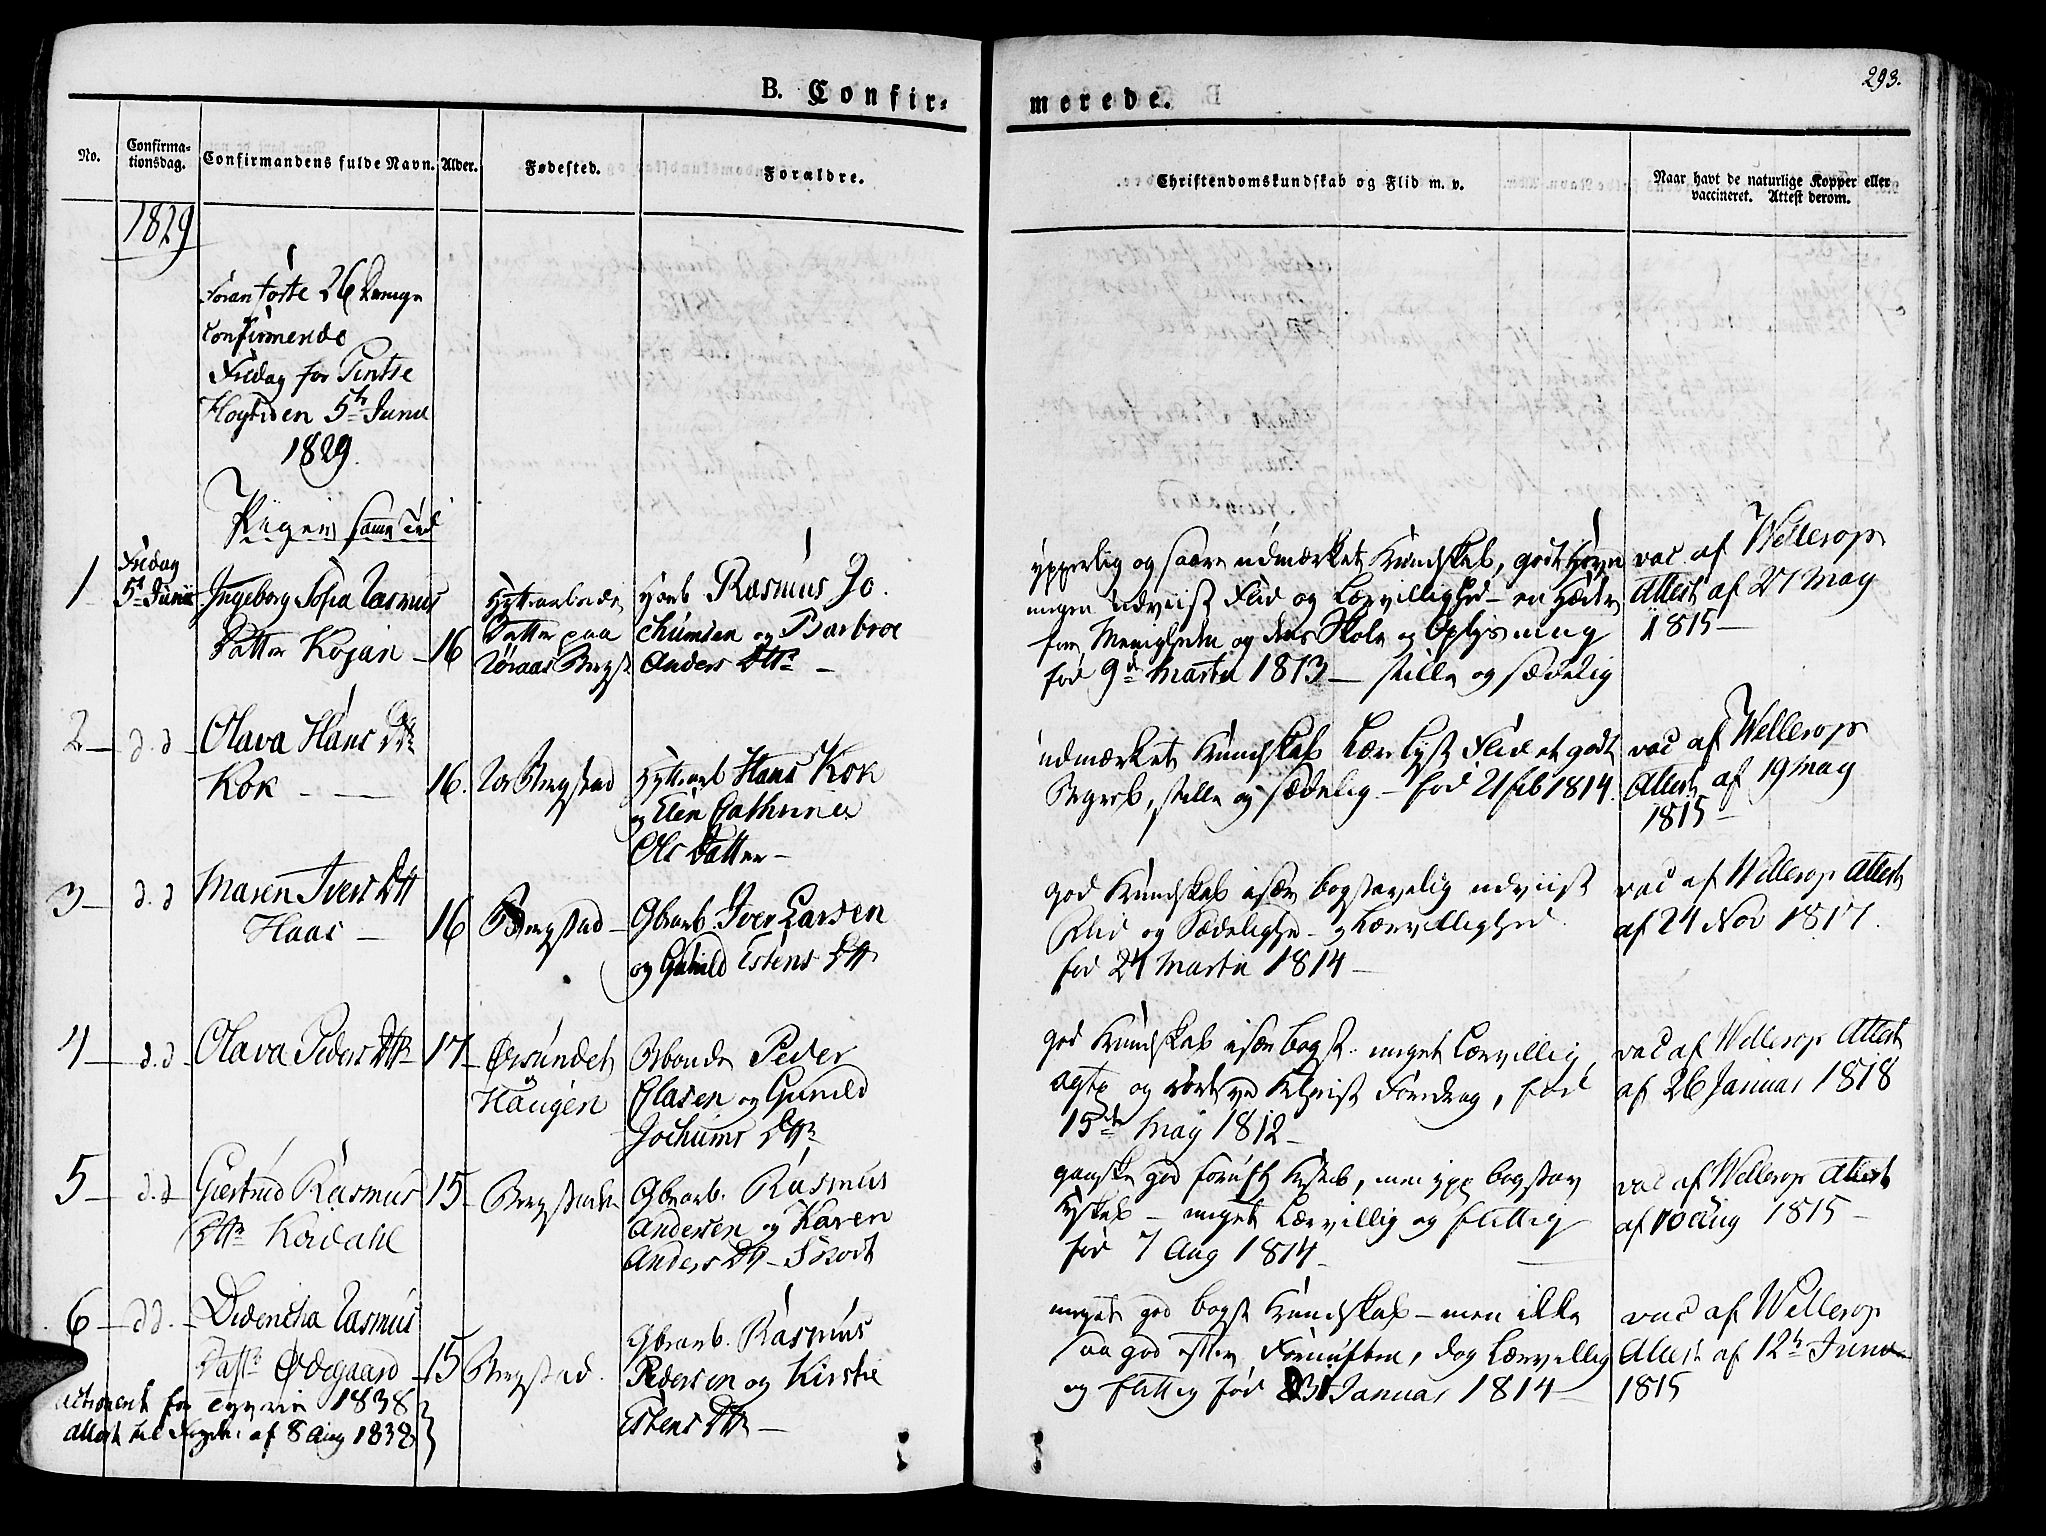 B. Confir-
merede.
293.
No.
Confirma-
tionsdag.
Confirmandens fulde Navn.
Alder.
Fødested.
Forældre.
Christendomskundskab og Flid m. v.
Naar havt de naturlige Kopper eller
vaccineret. Attest derom.
1829
26
Confirmerede
Fredag før Pintse
Høytiden 5te Junii
1829.
Piger samme Tid
1
Fredag
5te Junii
Ingeborg Sofia Rasmus
Datter Kojan
16
Hytte
Datter paa
Røraas Bergst
Hyarb Rasmus Jo
chumsen og Barbroe
Anders Dttr
ypperlig og saare udmærket Kundskab, godt
megen udviist Flid og Lærvillighed - en Hæder
for Menigheden og dens Skole og Oplysning
fød 9de Martii 1813 - stille og sædelig
vac. af Wellerop
Attest af 27 May
1815
2 - d.d - Olava Hans Dtr
Kok
16.
Bergstad
Hytteab Hans Kok
og Elen Cathrine
Ols Datter
udmærket Kundskab Lærelyst Flid et godt
Begreb, stille og sædelig - fød 21 feb 1814.
vac af Wellerop
Attest af 19 May
1815
3 - d.d
Maren Ivers Dtt
Haas
16
Bergstad
Gbrarb. Iver Larsen
og Gunild Estens Dtt
god Kundskab især bogstavelig udviist
Flid og Sædelighed - og Lærvillighed
fød 24 Martii 1814
vac af Wellerop Attest
af 24 Nov 1817.
4 - d.d - Olava Peders Dttr
17
Ørsundet
Haugen
Peder
Olasen og Gunild
Jochums Dttr
god Kundskab især bogst. meget Lærvillig
og Foredrag, fød
15de May 1812
vac af Wellerop Attest
af 26 Januar 1818
5 - d.d
Giertrud Rasmus
Dttr Kordahl
15
Bergstaden
Gbrarb. Rasmus
Andersen og Karen
Anders Dtt
ganske god men ypp bogstav
Kskab - meget Lærvillig og flittig
fød 7 Aug 1814
vac af Wellerop Attest
af 10 Aug 1815
6 - dd. -
Rasmus
Datr Ødegaard
15
Bergstad.
Gbrarb. Rasmus
Pedersen og Kirstie
Estens Dttr
meget god bogst Kundskab - men ikke
saa god efter Fornuften, dog Lærvillig
og flittig fød 31 Januar 1814
vac af Wellerop
Attest af 12te Junii
1815
for 1838
Attest til af 8 Aug 1838